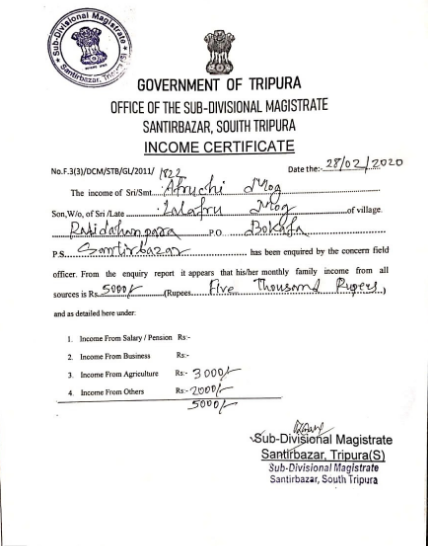 Sub-Divisional Magistrate
Santirbazar, Tripura
GOVERNMENT OF TRIPURA
OFFICE OF THE SUB-DIVISIONAL MAGISTRATE
SANTIRBAZAR, SOUITH TRIPURA
INCOME CERTIFICATE
No.F.3(3)/DCM/STB/GL/2011/ 1822 Date the: 28/02/2020
The income of Sri/Smt. Afruchi Mog
Son,W/o, of Sri /Late Lalafru Mog of village.
P.O. Bokafa
P.S. Santirbazar has been enquired by the concern field
officer. From the enquiry report it appears that his/her monthly family income from all
sources is Rs. 5000/- (Rupees Five Thousand Rupees,
and as detailed here under:
1. Income From Salary / Pension Rs:-
2. Income From Business Rs:-
3. Income From Agriculture Rs:- 3000/-
4. Income From Others Rs:- 2000/-
5000/-
Sub-Divisional Magistrate
Santirbazar, Tripura(S)
Sub-Divisional Magistrate
Santirbazar, South Tripura